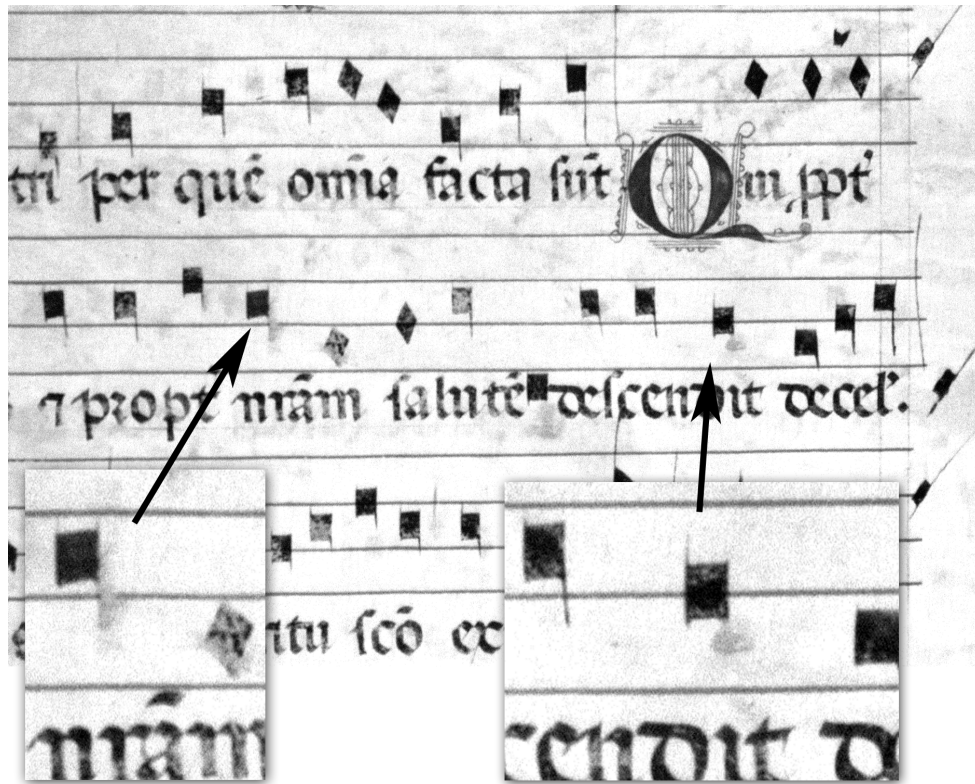 tri per quē om̄ia facta sūt Qui ꝓpt᷑
⁊ propt᷑ nr̄am salutē descendit decel᷑.
itu sc̄o ex
nr̄am
cendit d